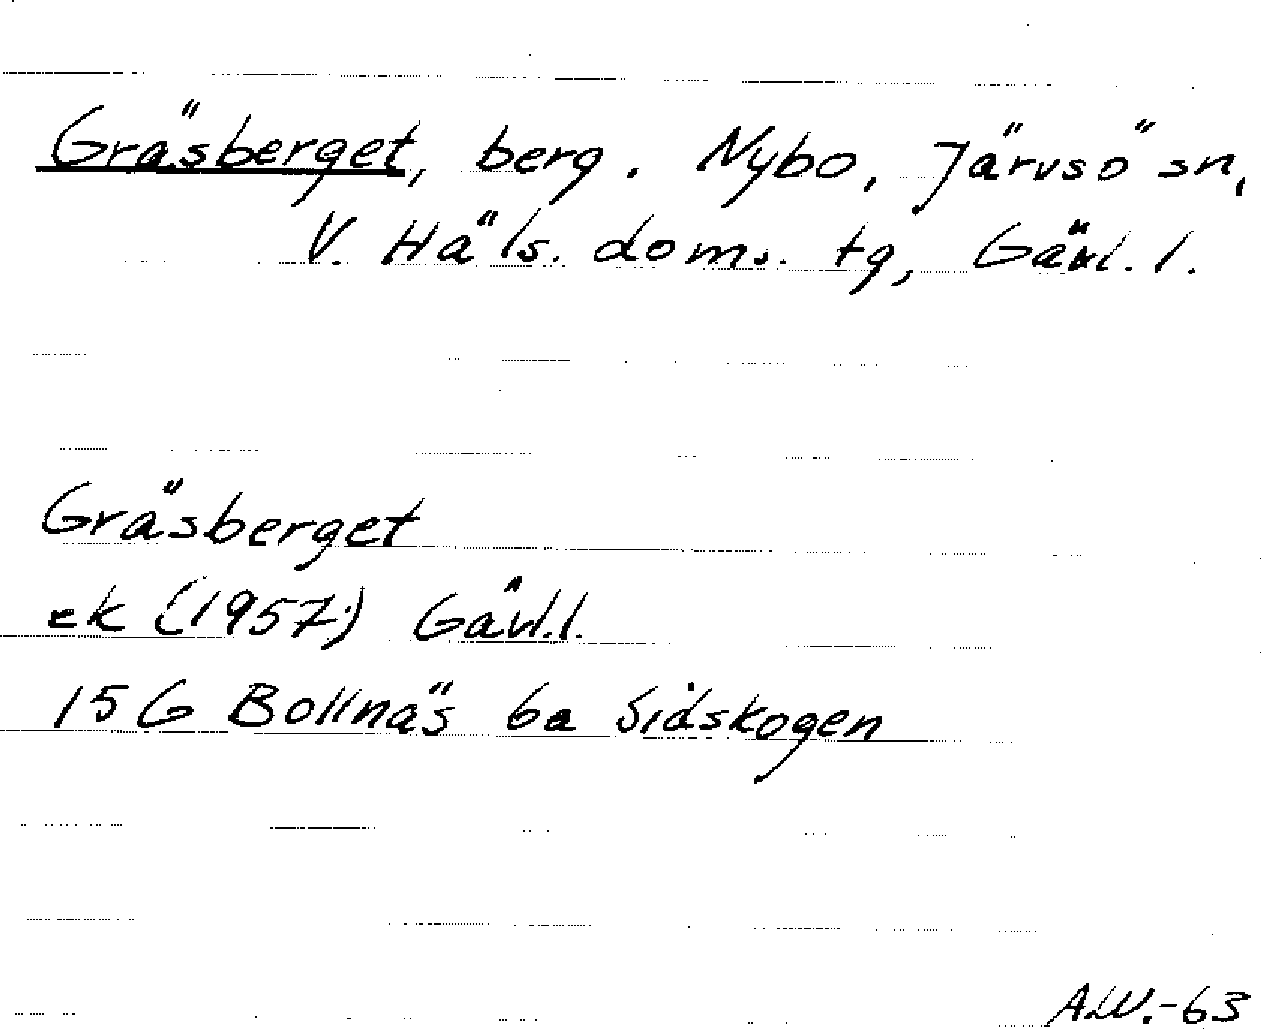 Gräsberget, berg. Nybo, Järvsö sn,
V. Häls. doms. tg, Gävl. l.
Gräsberget
ek (1957) Gävl.l.
15 G Bollnäs 6a Sidskogen
ALW.-63